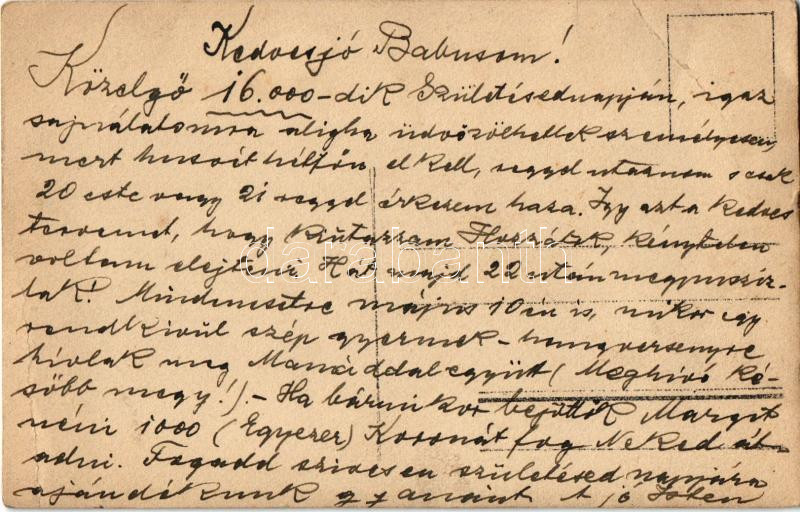 Kedvesjó Babusom!
Közelgő 16.000-dik Születésednapján, igaz
sajnálatomra aligha üdvözölhetlek személyesen,
mert husvét héttőn el kell, reggel utaznom s csak
20 este vagy 21 reggel érkezem haza. Igy azt a kedves
tervemet, hogy kiutazzam Hozzátok, kénytelen
voltam elejteni. Hat majd 22 után megpusziz-
lak! Mindenesetre május 10 én is, mikor egy
rendkivül szép gyermek-hangversenyre
hivlak meg Mamáddal együtt (Meghivó ké-
sőbb megy!).- Ha bármikor bejöttök Margit
néni 1000 (Egyezer) Koronát fog Neked át-
adni. Fogadd szivesen születésed napjára
ajándékunk gyanánt A jó Isten
darabanth